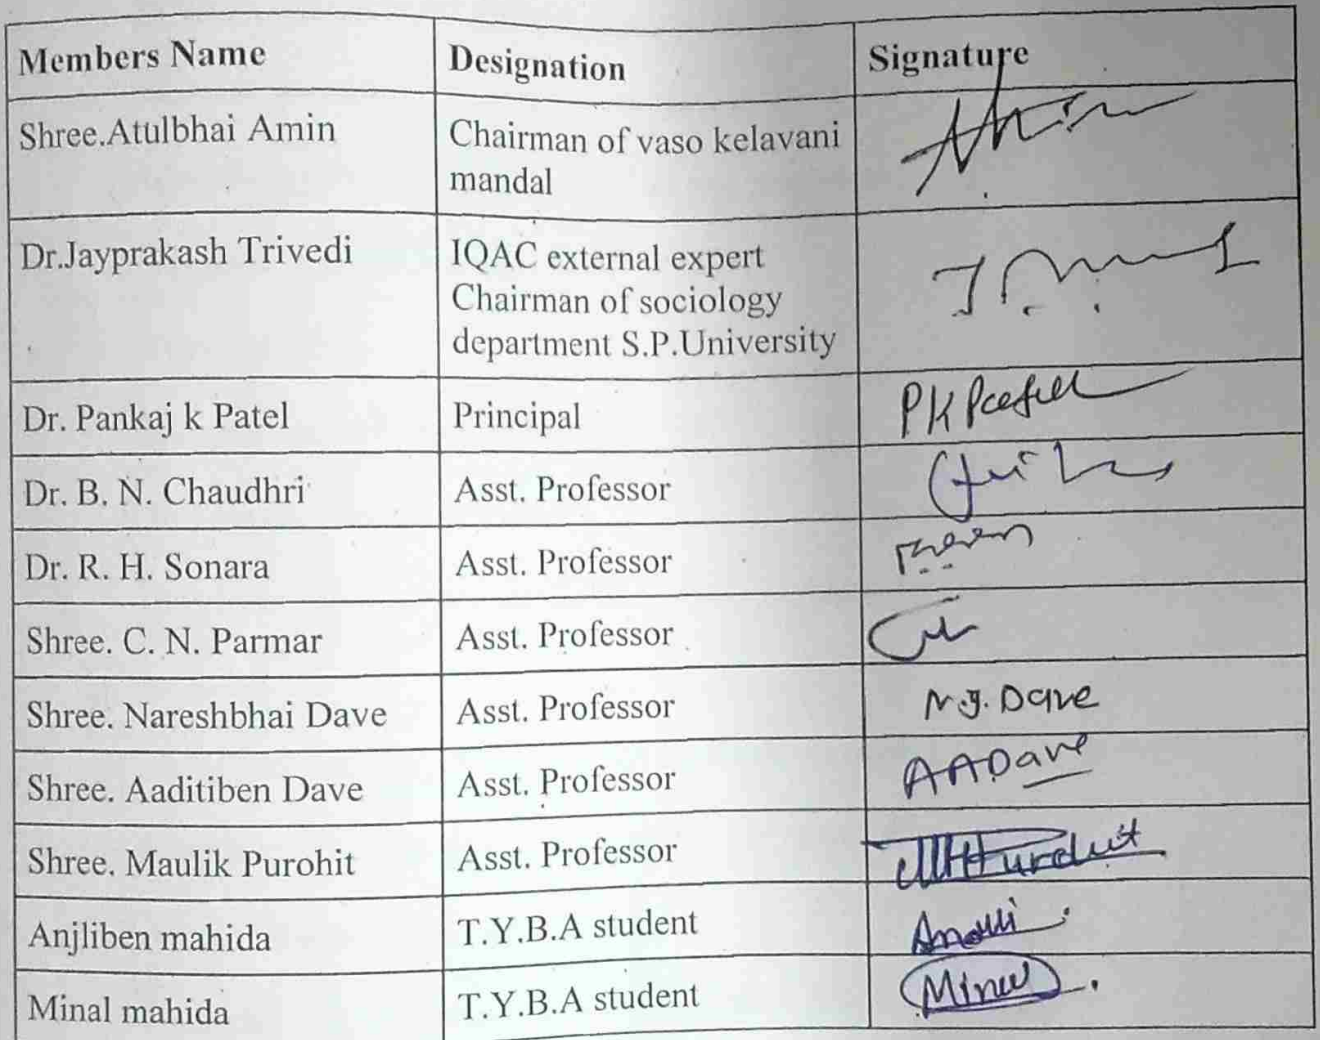 Members Name Designation Signature
Shree.Atulbhai Amin Chairman of vaso kelavani
mandal
Dr.Jayprakash Trivedi IQAC external expert
Chairman of sociology
department S.P.University
Dr. Pankaj k Patel Principal PKPatel
Dr. B. N. Chaudhri Asst. Professor
Dr. R. H. Sonara Asst. Professor
Shree. C. N. Parmar Asst. Professor
Shree. Nareshbhai Dave Asst. Professor N.J. Dave
Shree. Aaditiben Dave Asst. Professor AADave
Shree. Maulik Purohit Asst. Professor
Anjliben mahida T.Y.B.A student
Minal mahida T.Y.B.A student Minal